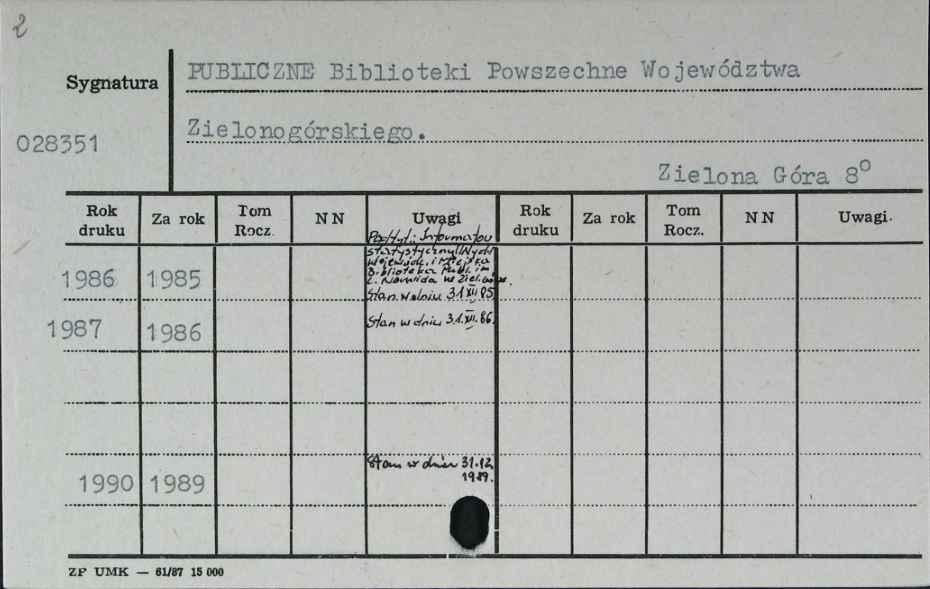 2
PUBLICZNE Biblioteki Powszechne Województwa
Sygnatura
Zielonogórskiego.
028351
Zielona Góra 8⁰
Rok druku Za rok Tom Rocz. NN Uwagi Rok druku Za rok Tom Rocz. NN Uwagi.
Informator
statystyczny
Wojewódz. i Miejska
Biblioteka Publ. im.
C. Norwida w Ziel. Górze.
1986 1985 Stan w dniu 31 XII 85
1987 1986 Stan w dniu 31.XII.86.
Stan w dniu 31.12.
1990 1989 1989.
ZP UMK — 61/87 15 000